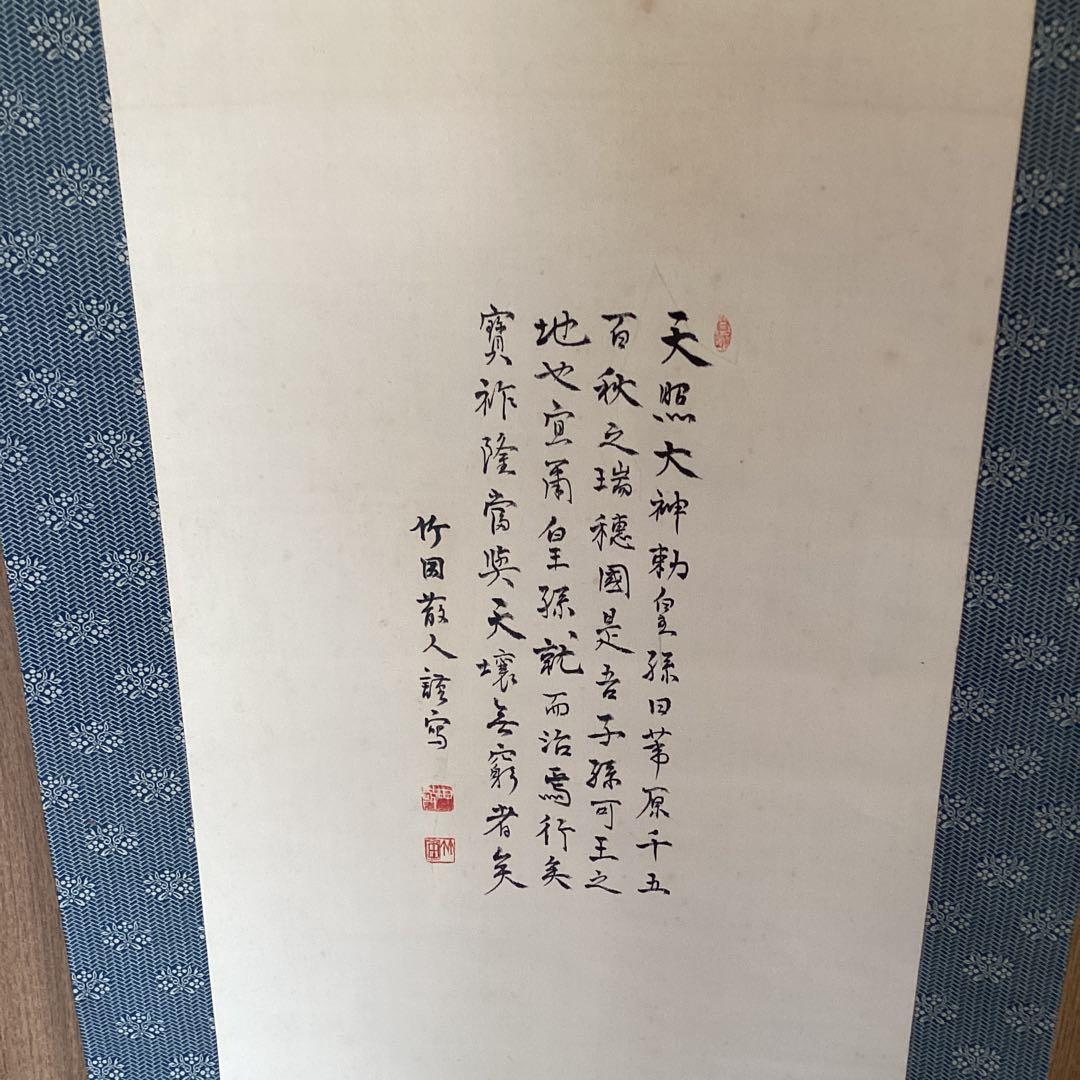 天照大神勅皇孫曰葦原千五
百秋之瑞穗國是吾子孫可王之
地也宜爾皇孫就而治焉行矣
寶祚隆當與天壤無窮者矣
竹園散人謹寫